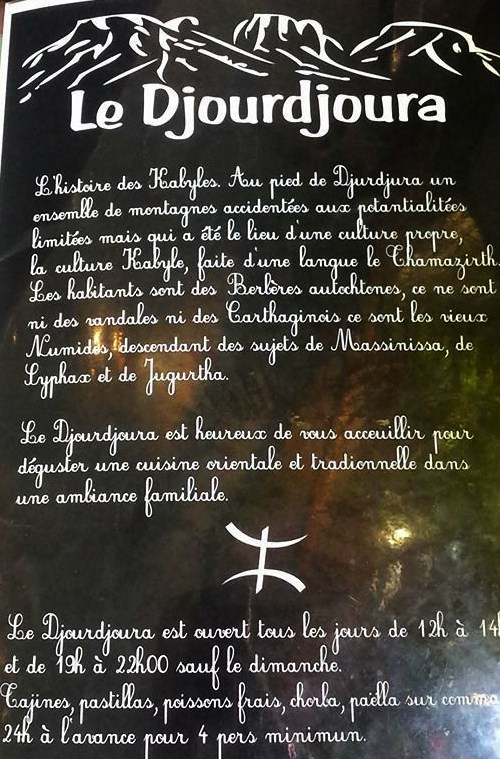 Le Djourdjoura
L'histoire des Kabyles. Au pied de Djurdjura un
ensemble de montagnes accidentées aux potantialitées
limitées mais qui a été le lieu d'une culture propre,
la culture Kabyle, faite d'une langue le Thamazirth.
Les habitants sont des Berbères autochtones, ce ne sont
ni des vandales ni des Carthaginois ce sont les vieux
Numides, descendant des sujets de Massinissa, de
Syphax et de Jugurtha.
Le Djourdjoura est heureux de vous acceuillir pour
déguster une cuisine orientale et tradionnelle dans
une ambiance familiale.
ⵣ
Le Djourdjoura est ouvert tous les jours de 12h à 14h
et de 19h à 22h00 sauf le dimanche.
Tajines, pastillas, poissons frais, chorba, paëlla sur comma
24h à l'avance pour 4 pers minimun.